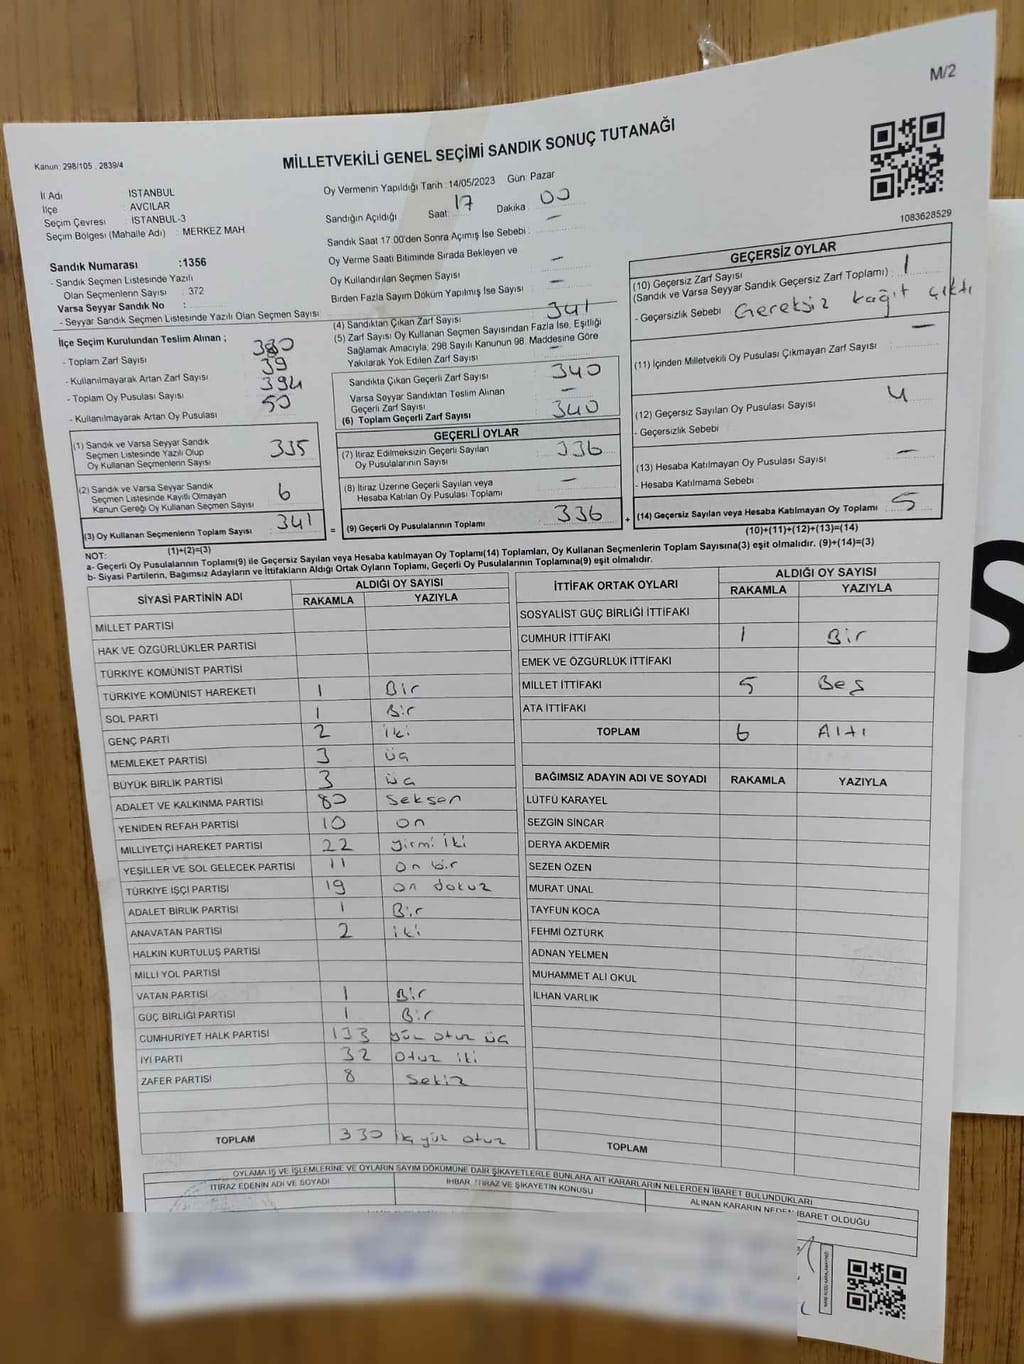 M/2
Kanun: 298/105 , 2839/4
MİLLETVEKİLİ GENEL SEÇİMİ SANDIK SONUÇ TUTANAĞI
1083628529
İl Adı İSTANBUL
İlçe AVCILAR
Seçim Çevresi : İSTANBUL-3
Seçim Bölgesi (Mahalle Adı) : MERKEZ MAH
Sandık Numarası :1356
- Sandık Seçmen Listesinde Yazılı
Olan Seçmenlerin Sayısı : 372
Varsa Seyyar Sandık No :
- Seyyar Sandık Seçmen Listesinde Yazılı Olan Seçmen Sayısı
İlçe Seçim Kurulundan Teslim Alınan ;
- Toplam Zarf Sayısı 380
- Kullanılmayarak Artan Zarf Sayısı 39
- Toplam Oy Pusulası Sayısı 394
- Kullanılmayarak Artan Oy Pusulası 50
(1) Sandık ve Varsa Seyyar Sandık
Seçmen Listesinde Yazılı Olup
Oy Kullanan Seçmenlerin Sayısı 335
(2) Sandık ve Varsa Seyyar Sandık
Seçmen Listesinde Kayıtlı Olmayan
Kanun Gereği Oy Kullanan Seçmen Sayısı 6
(3) Oy Kullanan Seçmenlerin Toplam Sayısı 341
(1)+(2)=(3)
Oy Vermenin Yapıldığı Tarih : 14/05/2023 Gün: Pazar
Sandığın Açıldığı Saat: 17 Dakika : 00
Sandık Saat 17.00'den Sonra Açımış İse Sebebi : —
Oy Verme Saati Bitiminde Sırada Bekleyen ve
Oy Kullandırılan Seçmen Sayısı —
Birden Fazla Sayım Döküm Yapılmış İse Sayısı : —
(4) Sandıktan Çıkan Zarf Sayısı 341
(5) Zarf Sayısı Oy Kullanan Seçmen Sayısından Fazla İse, Eşitliği
Sağlamak Amacıyla, 298 Sayılı Kanunun 98. Maddesine Göre
Yakılarak Yok Edilen Zarf Sayısı —
Sandıkta Çıkan Geçerli Zarf Sayısı 340
Varsa Seyyar Sandıktan Teslim Alınan
Geçerli Zarf Sayısı —
(6) Toplam Geçerli Zarf Sayısı 340
GEÇERLİ OYLAR
(7) İtiraz Edilmeksizin Geçerli Sayılan
Oy Pusulalarının Sayısı 336
(8) İtiraz Üzerine Geçerli Sayılan veya
Hesaba Katılan Oy Pusulası Toplamı —
= (9) Geçerli Oy Pusulalarının Toplamı 336 +
GEÇERSİZ OYLAR
(10) Geçersiz Zarf Sayısı
(Sandık ve Varsa Seyyar Sandık Geçersiz Zarf Toplamı) : 1
- Geçersizlik Sebebi Gereksiz kağıt çıktı
(11) İçinden Milletvekili Oy Pusulası Çıkmayan Zarf Sayısı —
(12) Geçersiz Sayılan Oy Pusulası Sayısı 4
- Geçersizlik Sebebi :
(13) Hesaba Katılmayan Oy Pusulası Sayısı —
- Hesaba Katılmama Sebebi :
(14) Geçersiz Sayılan veya Hesaba Katılmayan Oy Toplamı 5
(10)+(11)+(12)+(13)=(14)
NOT:
a- Geçerli Oy Pusulalarının Toplamı(9) ile Geçersiz Sayılan veya Hesaba katılmayan Oy Toplamı(14) Toplamları, Oy Kullanan Seçmenlerin Toplam Sayısına(3) eşit olmalıdır. (9)+(14)=(3)
b- Siyasi Partilerin, Bağımsız Adayların ve İttifakların Aldığı Ortak Oyların Toplamı, Geçerli Oy Pusulalarının Toplamına(9) eşit olmalıdır.
SİYASİ PARTİNİN ADI ALDIĞI OY SAYISI
RAKAMLA YAZIYLA
MİLLET PARTİSİ
HAK VE ÖZGÜRLÜKLER PARTİSİ
TÜRKİYE KOMÜNİST PARTİSİ
TÜRKİYE KOMÜNİST HAREKETİ 1 Bir
SOL PARTİ 1 Bir
GENÇ PARTİ 2 iki
MEMLEKET PARTİSİ 3 üç
BÜYÜK BİRLİK PARTİSİ 3 üç
ADALET VE KALKINMA PARTİSİ 80 Seksen
YENİDEN REFAH PARTİSİ 10 on
MİLLİYETÇİ HAREKET PARTİSİ 22 yirmi iki
YEŞİLLER VE SOL GELECEK PARTİSİ 11 on bir
TÜRKİYE İŞÇİ PARTİSİ 19 on dokuz
ADALET BİRLİK PARTİSİ 1 Bir
ANAVATAN PARTİSİ 2 iki
HALKIN KURTULUŞ PARTİSİ
MİLLİ YOL PARTİSİ
VATAN PARTİSİ 1 Bir
GÜÇ BİRLİĞİ PARTİSİ 1 Bir
CUMHURİYET HALK PARTİSİ 133 yüz otuz üç
İYİ PARTİ 32 otuz iki
ZAFER PARTİSİ 8 sekiz
TOPLAM 330 yüz otuz
İTTİFAK ORTAK OYLARI ALDIĞI OY SAYISI
RAKAMLA YAZIYLA
SOSYALİST GÜÇ BİRLİĞİ İTTİFAKI
CUMHUR İTTİFAKI 1 Bir
EMEK VE ÖZGÜRLÜK İTTİFAKI
MİLLET İTTİFAKI 5 Beş
ATA İTTİFAKI
TOPLAM 6 Altı
BAĞIMSIZ ADAYIN ADI VE SOYADI RAKAMLA YAZIYLA
LÜTFÜ KARAYEL
SEZGİN SİNCAR
DERYA AKDEMİR
SEZEN ÖZEN
MURAT ÜNAL
TAYFUN KOCA
FEHMİ ÖZTÜRK
ADNAN YELMEN
MUHAMMET ALİ OKUL
İLHAN VARLIK
TOPLAM
OYLAMA İŞ VE İŞLEMLERİNE VE OYLARIN SAYIM DÖKÜMÜNE DAİR ŞİKAYETLERLE BUNLARA AİT KARARLARIN NELERDEN İBARET BULUNDUKLARI
İTİRAZ EDENİN ADI VE SOYADI İHBAR, İTİRAZ VE ŞİKAYETİN KONUSU ALINAN KARARIN NEDEN İBARET OLDUĞU
S